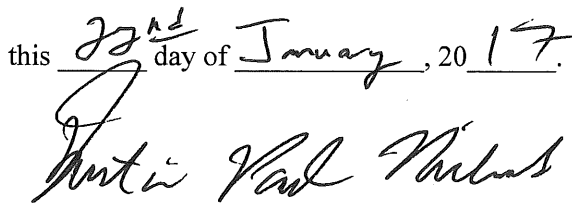 this 22nd day of January, 2017.
Justin Paul Nichols